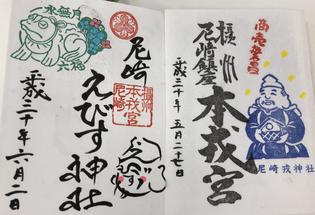 商売繁昌
摂州
尼崎鎮座
本戎宮
平成二十年五月二十七日
尼崎戎神社
水無月
六福
尼崎
えびす神社
摂州
本戎宮
尼崎
平成二十年六月二日